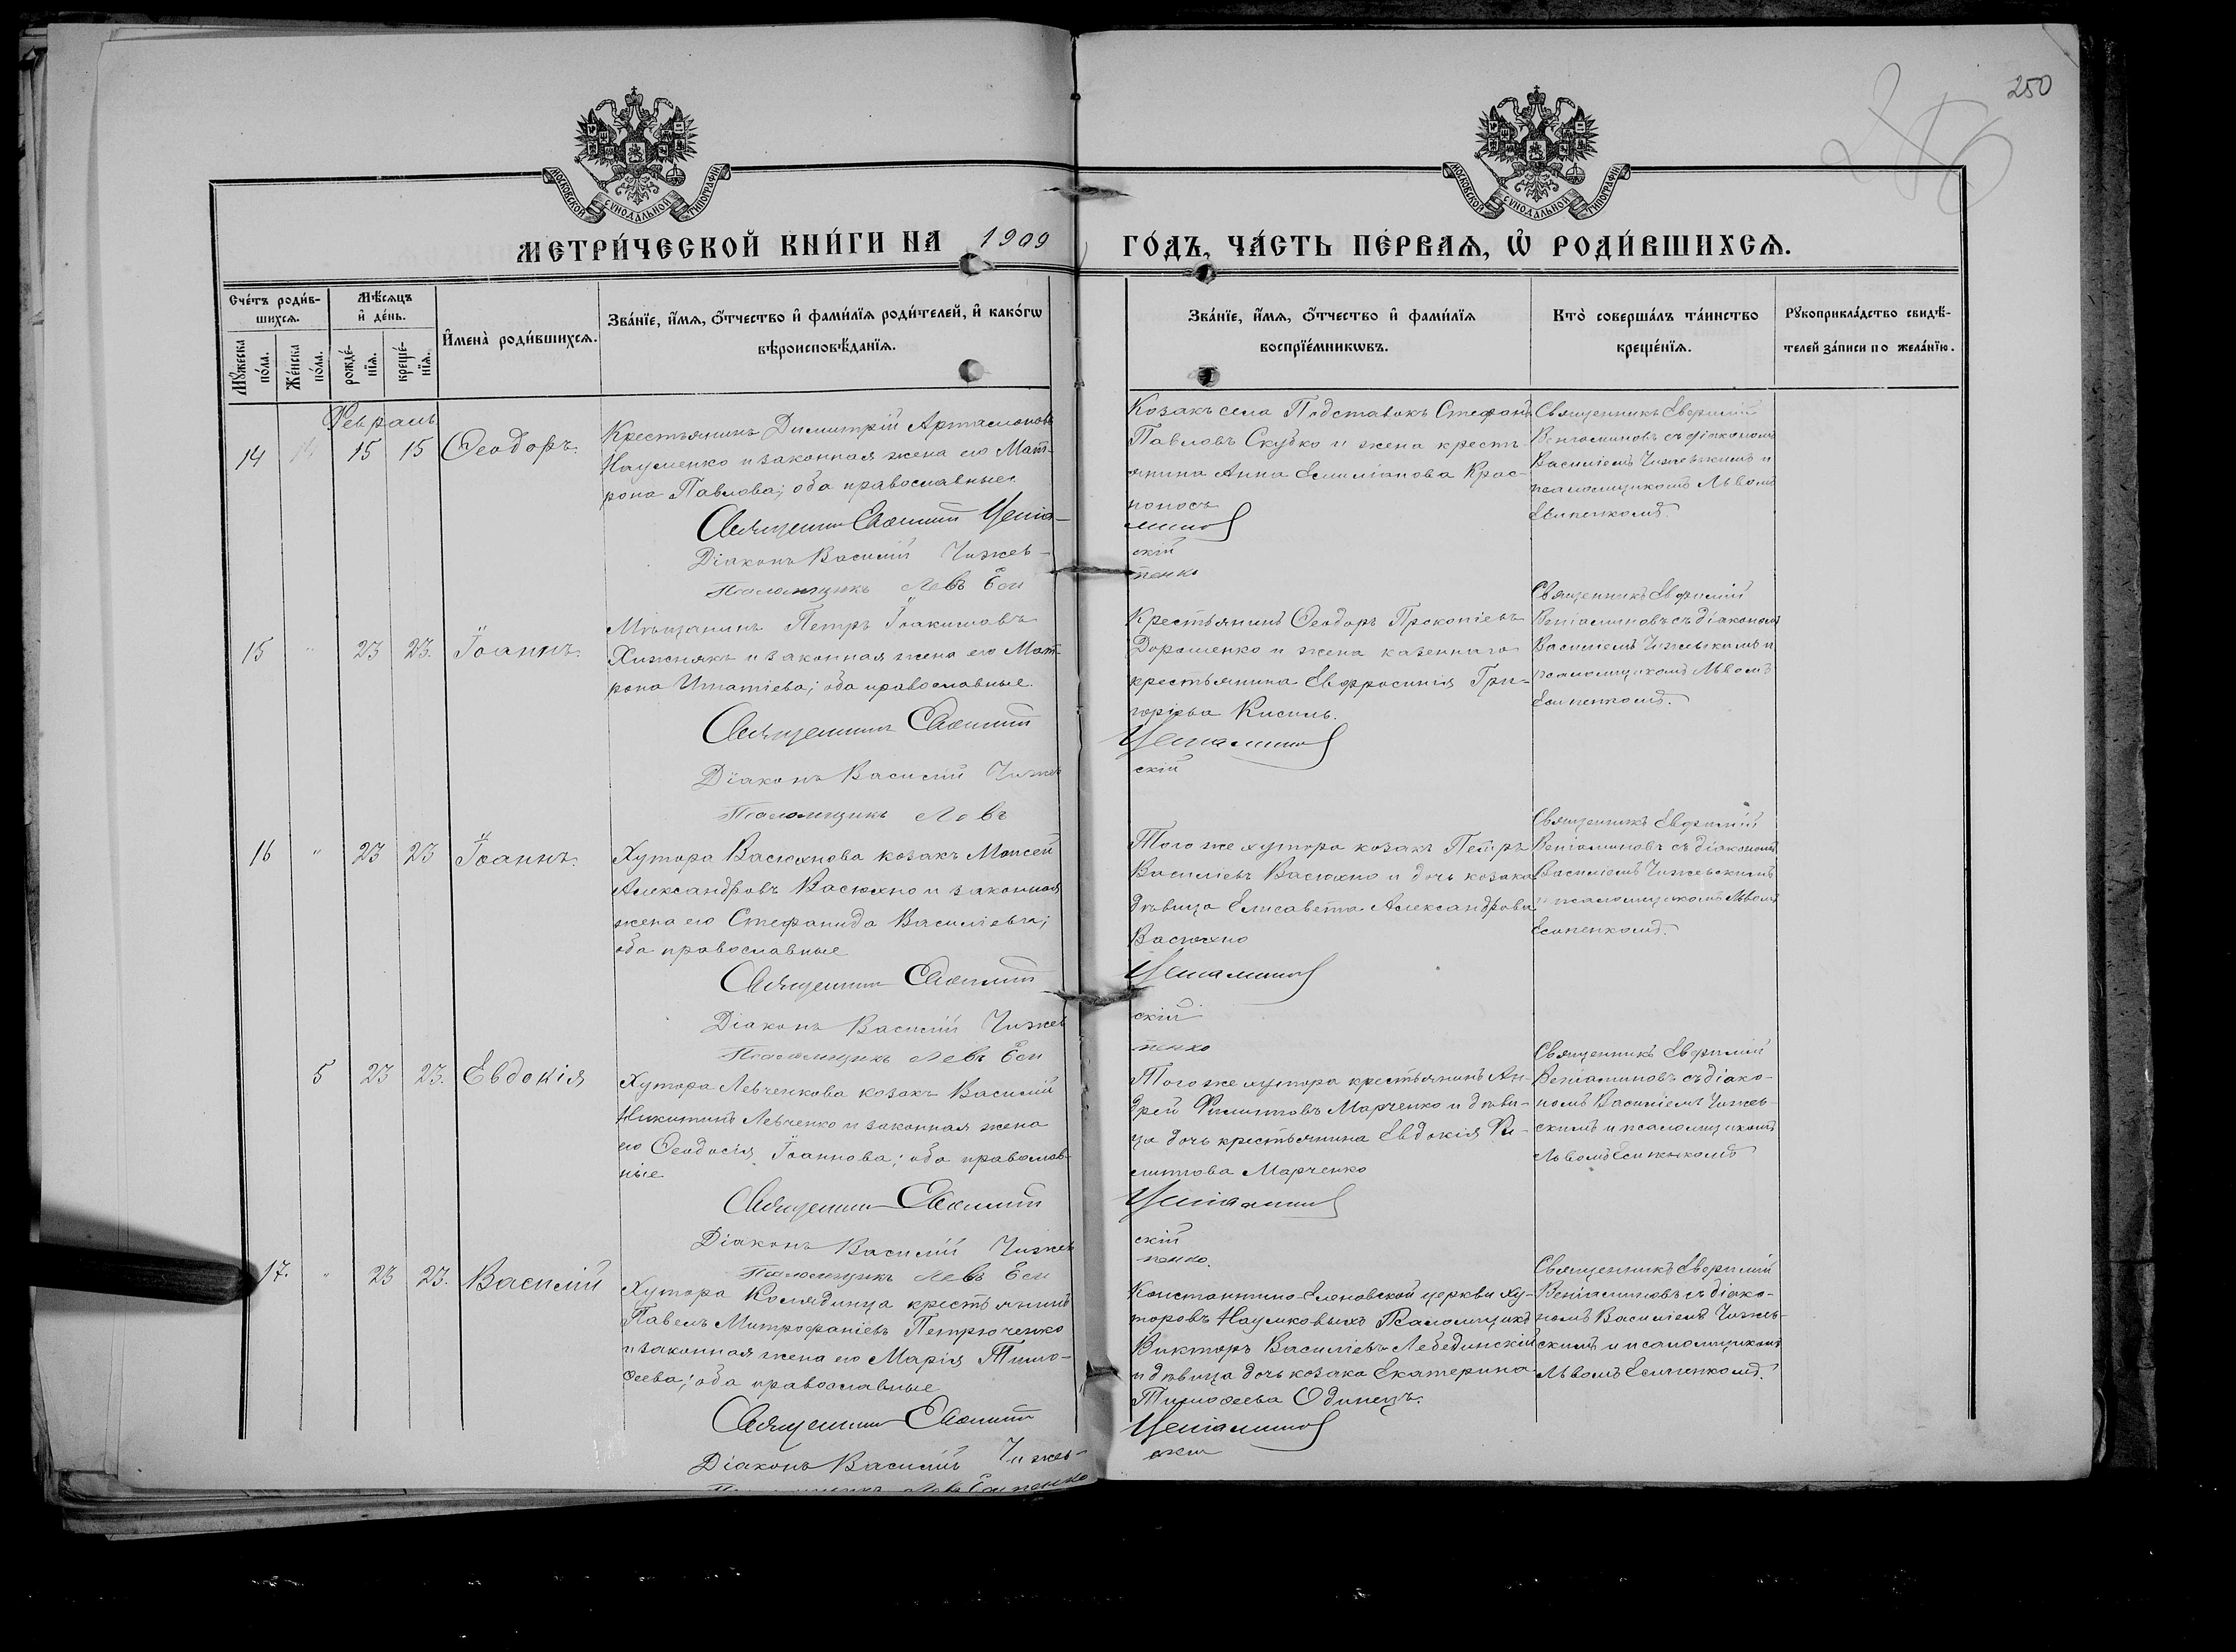 250
МОСКОВСКОЙ СѴНОДАЛЬНОЙ ТИПОГРАФІИ
МОСКОВСКОЙ СѴНОДАЛЬНОЙ ТИПОГРАФІИ
МЕТРИ́ЧЕСКОЙ КНИ́ГИ НА 1909 ГО́ДЪ, ЧА́СТЬ ПЕ́РВАѦ, Ѽ РОДИ́ВШИХСѦ.
Сче́тъ роди́в-
шихсѧ.
Мꙋ́жеска по́ла.
Же́нска по́ла.
Мѣ́сѧцъ
и҆ де́нь.
рожде́-
нїѧ.
креще́-
нїѧ.
И҆мена̀ роди́вшихсѧ.
Зва́нїе, и҆́мѧ, ѻ҆́тчество и҆ фами́лїѧ роди́телей, и҆ како́гѡ
вѣроисповѣ́данїѧ.
Зва́нїе, и҆́мѧ, ѻ҆́тчество и҆ фами́лїѧ
воспрїе́мникѡвъ.
Кто̀ соверша́лъ та́инство
креще́нїѧ.
Рꙋкоприкла́дство свидѣ́-
телей за́писи по жела́нїю.
Февраль
14 15 15 Ѳеодоръ.
Крестьянинъ Димитрій Артамоновъ
Науменко и законная жена его Мат-
рона Павлова; оба православные
Священникъ Евѳимій Веніа-
Діаконъ Василій Чижев-
Псаломщикъ Левъ Еси
Козакъ села Подставокъ Стефанъ
Павловъ Скубко и жена кресть-
янина Анна Емиліанова Крас-
поносъ
миновъ
скій
пенко
Священникъ Евфимій
Веніаминовъ съ діакономъ
Василіемъ Чижевскимъ и
псаломщикомъ Львомъ
Есипенкомъ.
15 " 23 23. Іоаннъ.
Мѣщанинъ Петръ Іоакимовъ
Хижнякъ и законная жена его Мат-
рона Игнатіева; оба православные.
Священникъ Евѳимій
Діаконъ Василій Чижев
Псаломщикъ Левъ
Крестьянинъ Ѳеодоръ Прокопіевъ
Дорошенко и жена казеннаго
крестьянина Евфросинія Гри-
горіева Кисиль.
Веніаминовъ
скій
Священникъ Евфимій
Веніаминовъ съ діакономъ
Василіемъ Чижевскимъ и
псаломщикомъ Львомъ
Есипенкомъ.
16 " 23 23 Іоаннъ.
Хутора Васюхнова козакъ Моисей
Александровъ Васюхно и законная
жена его Стефанида Василіева;
оба православные
Священникъ Евѳимій
Діаконъ Василій Чижев
Псаломщикъ Левъ Еси
Того же хутора козакъ Петръ
Василіевъ Васюхно и дочь козака
дѣвица Елисавета Александрова
Васюхно
Веніаминовъ
скій
пенко
Священникъ Евфимій
Веніаминовъ съ діакономъ
Василіемъ Чижевскимъ
и псаломщикомъ Львомъ
Есипенкомъ.
5 23 23. Евдокія
Хутора Левченкова козакъ Василій
Никитинъ Левченко и законная жена
его Ѳеодосія Іоаннова; оба православ-
ные
Священникъ Евѳимій
Діаконъ Василій Чижев
Псаломщикъ Левъ Еси
Того же хутора крестьянинъ Ан-
дрей Филипповъ Марченко и дѣви-
ца дочь крестьянина Евдокія Фи-
липпова Марченко
Веніаминовъ
скій
пенко.
Священникъ Евфимій
Веніаминовъ съ діако-
номъ Василіемъ Чижев-
скимъ и псаломщикомъ
Львомъ Есипенкомъ
17. " 23 23. Василій
Хутора Колядинца крестьянинъ
Павелъ Митрофаніевъ Петрюченко
и законная жена его Марія Тимо-
ѳеева; оба православные
Священникъ Евѳимій
Діаконъ Василій Чижев-
Псаломщикъ Левъ Есипенко
Константино-Еленовской церкви ху-
торовъ Наумковыхъ Псаломщикъ
Викторъ Василіевъ Лебединскій
и дѣвица дочь козака Екатерина
Тимоѳеева Одинецъ.
Веніаминовъ
скій
Священникъ Евфимій
Веніаминовъ съ діако-
номъ Василіемъ Чижев-
скимъ и псаломщикомъ
Львомъ Есипенкомъ.